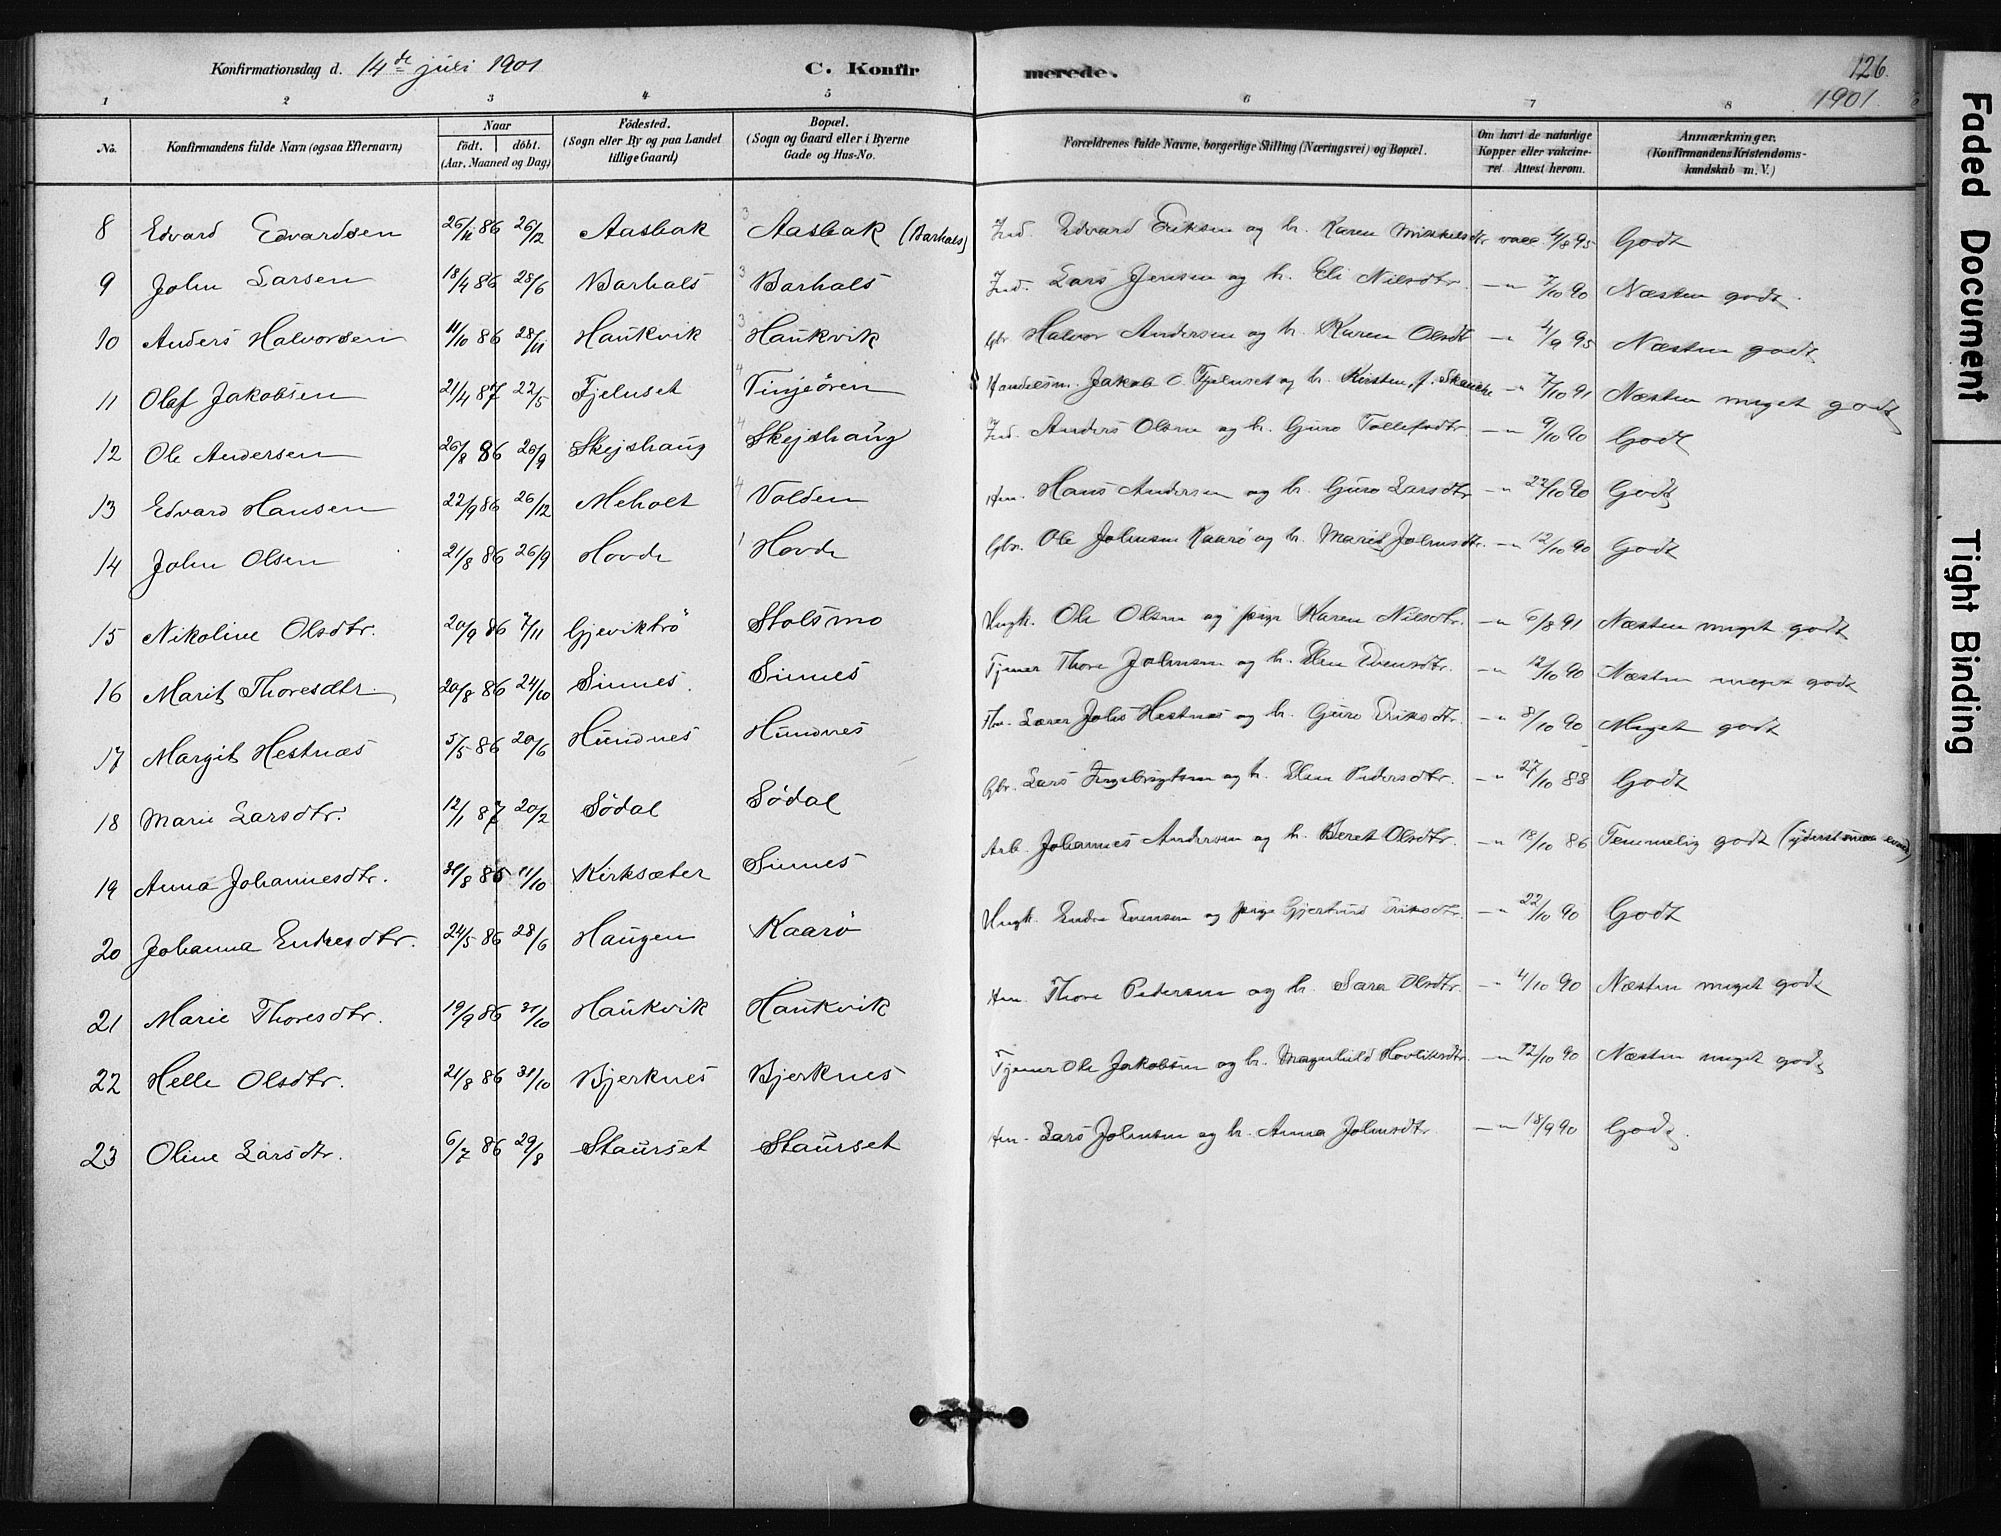 Konfirmationsdag d. 14de juli 1901 C. Konfirmerede. 126.
1901.
1 2 3 4 5 6 7 8
No. Konfirmandens fulde Navn (ogsaa Efternavn) Naar födt. döbt. (Aar, Maaned og Dag) Födested. (Sogn eller By og paa Landet tillige Gaard) Bopæl. (Sogn og Gaard eller i Byerne Gade og Hus-No. Forældrenes fulde Navne, borgerlige Stilling (Næringsvei) og Bopæl. Om havt de naturlige Kopper eller vakcineret. Attest herom. Anmærkninger. (Konfirmandens Kristendomskundskab m. V.)
8 Edvard Edvardsen 26/11 86 26/12 Aasbak 3 Aasbak (Barhals) Ind. Edvard Eriksen og h. Karen Mikkelsdtr vacc. 4/8 95 Godt
9 John Larsen 18/4 86 28/6 Barhals 3 Barhals Ind. Lars Jensen og h. Eli Nilsdtr. —"— 7/10 90 Næsten godt.
10 Anders Halvorsen 11/10 86 28/11 Haukvik 3 Haukvik Gbr. Halvor Andersen og h. Karen Olsdtr —"— 4/9 95 Næsten godt
11 Olaf Jakobsen 21/4 87 22/5 Fjelnset 4 Vinjeören Handelsm. Jakob O. Fjelnset og h. Kirsten, f. Skanche —"— 7/10 91 Næsten meget godt
12 Ole Andersen 26/8 86 26/9 Skejshaug 4 Skejshaug Ind. Anders Olsen og h. Guro Tollefsdtr. —"— 9/10 90 Godt
13 Edvard Hansen 22/9 86 26/12 Meholt 4 Volden Hans Andersen og h. Guro Larsdtr —"— 22/10 90 Godt
14 John Olsen 21/8 86 26/9 Hovde 1 Hovde Gbr. Ole Johnsen Kaarö og h. Marit Johnsdtr. —"— 12/10 90 Godt
15 Nikoline Olsdtr. 20/9 86 7/11 Gjeviktrö Stolsmo Ungk. Ole Olsen og pige Karen Nilsdtr. —"— 6/8 91 Næsten meget godt
16 Marit Thoresdtr. 20/8 86 24/10 Sinnes. Sinnes Tjener Thore Johnsen og h. Elen Evensdtr. —"— 12/10 90 Næsten meget godt
17 Margit Hestnæs 5/5 86 20/6 Hundnes Hundnes Lærer Johs Hestnæs og h. Guro Eriksdtr. —"— 8/10 90 Meget godt
18 Marie Larsdtr. 12/1 87 20/2 Södal Södal Gbr. Lars Ingebrigtsen og h. Elen Pedersdtr. —"— 27/10 88 Godt
19 Anna Johannesdtr. 31/8 85 11/10 Kirksæter Sinnes Arb. Johannes Andersen og h. Beret Olsdtr. —"— 18/10 86 Temmelig godt
20 Johanna Endresdtr. 24/5 86 28/6 Haugen Kaarö Ungk. Endre Evensen og pige Gjertrud Eriksdtr. —"— 22/10 90 Godt
21 Marie Thoresdtr. 19/9 86 31/10 Haukvik Haukvik Thore Pedersen og h. Sara Olsdtr. —"— 4/10 90 Næsten meget godt
22 Helle Olsdtr. 21/8 86 31/10 Bjerknes Bjerknes Tjener Ole Jakobsen og h. Magnhild —"— 12/10 90 Næsten meget godt
23 Oline Larsdtr. 6/7 86 29/8 Staurset Staurset Lars Johnsen og h. Anna Johnsdtr —"— 18/9 90 Godt.
Faded Document
Tight Binding